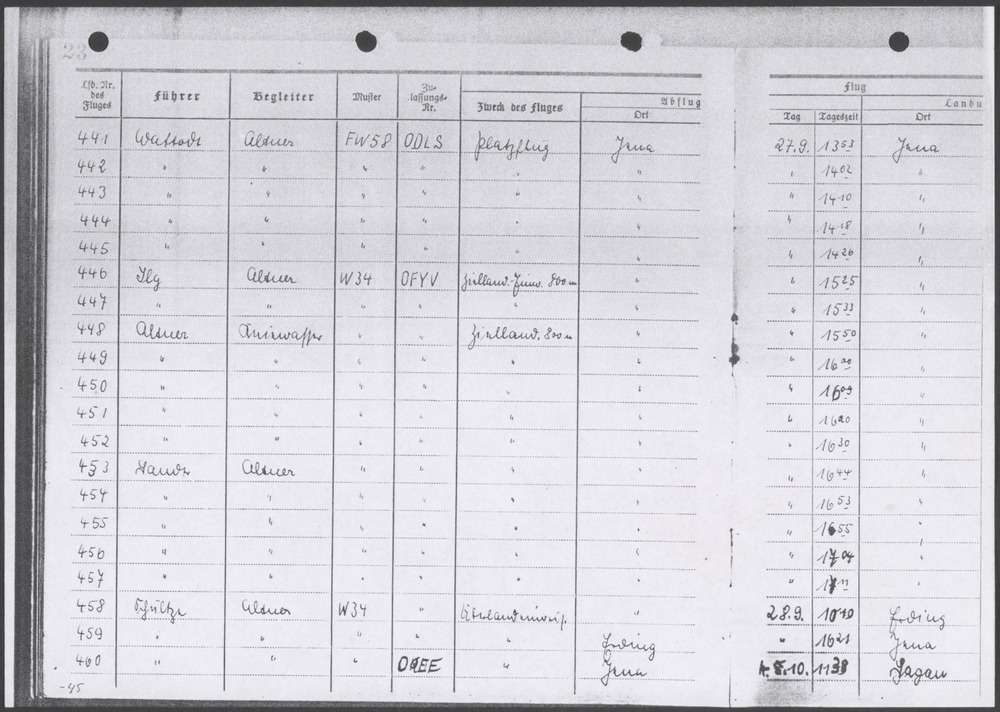 23
Lfd. Nr. des Fluges Führer Begleiter Muster Zu-lassungs-Nr. Zweck des Fluges Abflug Ort Flug Tag Tageszeit Landu Ort
441 Altner FW58 ODLS Platzflug Jena 27.9. 13 53 Jena
442 " " " " " " " 14 02 "
443 " " " " " " " 14 10 "
444 " " " " " " " 14 18 "
445 " " " " " " " 14 26 "
446 Ilg Altner W34 OFYV Zielland. 800 m " " 15 25 "
447 " " " " " " " 15 33 "
448 Altner " " Zielland. 800 m " " 15 50 "
449 " " " " " " " 16 00 "
450 " " " " " " " 16 09 "
451 " " " " " " " 16 20 "
452 " " " " " " " 16 30 "
453 Altner " " " " " 16 44 "
454 " " " " " " " 16 53 "
455 " " " " " " " 16 55 "
456 " " " " " " " 17 04 "
457 " " " " " " " 17 11 "
458 Schultze Altner W34 " " 28.9. 10 10 Erding
459 " " " " " Erding " 16 21 Jena
460 " " " " Jena 10. 11 38 Sagan
-45